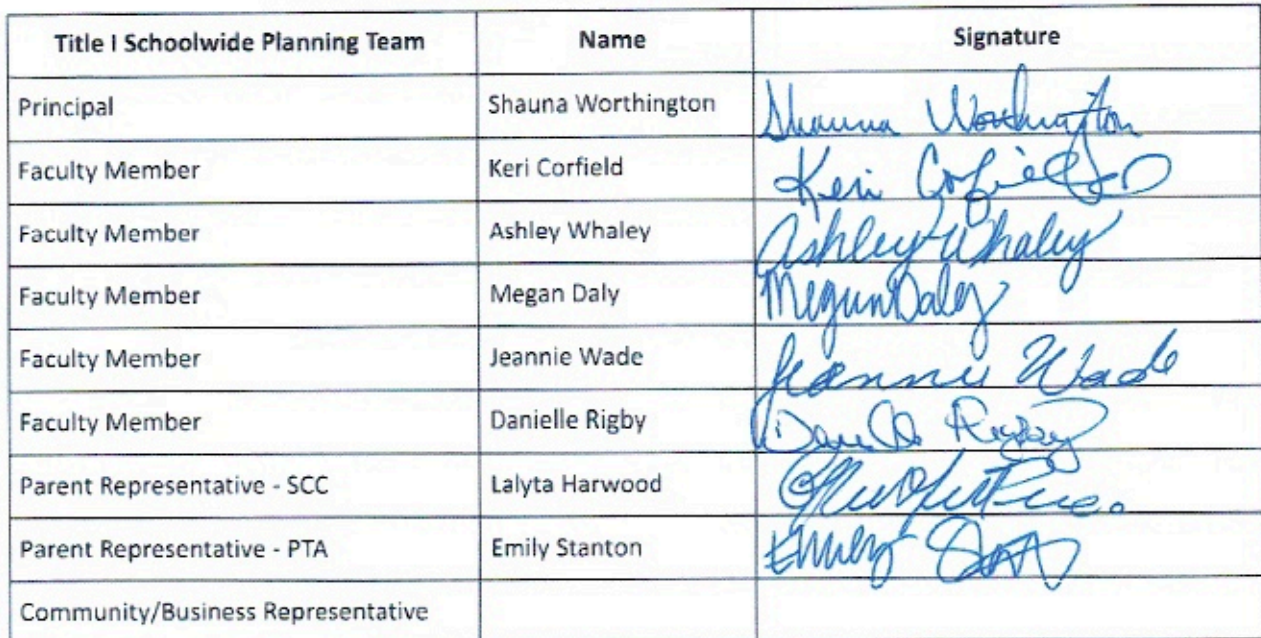 Title I Schoolwide Planning Team Name Signature
Principal Shauna Worthington Shauna Worthington
Faculty Member Keri Corfield Keri Corfield
Faculty Member Ashley Whaley Ashley Whaley
Faculty Member Megan Daly Megan Daly
Faculty Member Jeannie Wade Jeannie Wade
Faculty Member Danielle Rigby Danielle Rigby
Parent Representative - SCC Lalyta Harwood
Parent Representative - PTA Emily Stanton Emily
Community/Business Representative